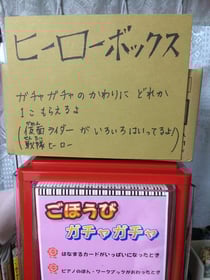 ヒーローボックス
ガチャガチャの かわりに どれか
1こ もらえるよ
(仮面ライダー が いろいろはいってるよ!)
戦隊ヒーロー
ごほうび
ガチャガチャ
はなまるカードがいっぱいになったとき
ピアノのほん・ワークブックがおわったとき